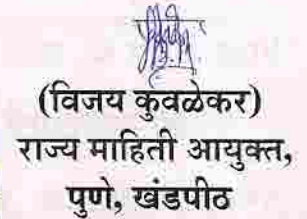 (विजय कुवळेकर)
राज्य माहिती आयुक्त,
पुणे, खंडपीठ